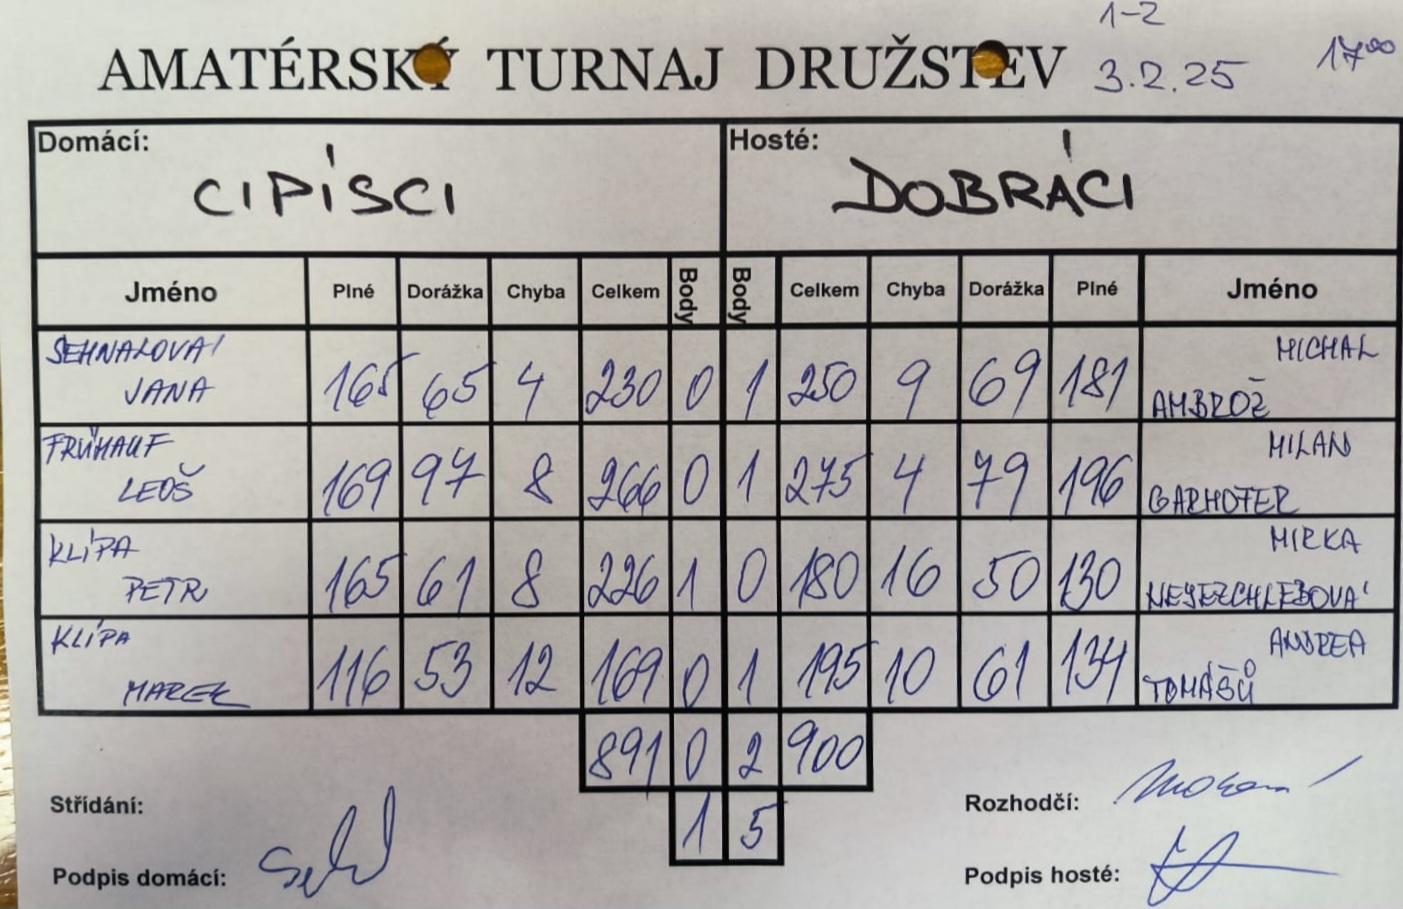 1-2
AMATÉRSKÝ TURNAJ DRUŽSTEV 3.2.25 17⁰⁰
Domácí: Hosté:
CIPÍSCI DOBRÁCI
Jméno Plné Dorážka Chyba Celkem Body Body Celkem Chyba Dorážka Plné Jméno
SEHNALOVÁ MICHAL
JANA 165 65 4 230 0 1 250 9 69 181 AMBROŽ
FRÜHAUF MILAN
LEOŠ 169 97 8 266 0 1 275 4 79 196 GARHOFER
KLÍPA MIRKA
PETR 165 61 8 226 1 0 180 16 50 130 NEJEZCHLEBOVÁ
KLÍPA ANDREA
MAREK 116 53 12 169 0 1 195 10 61 134 TOMÁŠŮ
891 0 2 900
Střídání: 1 5 Rozhodčí:
Podpis domácí: Podpis hosté: